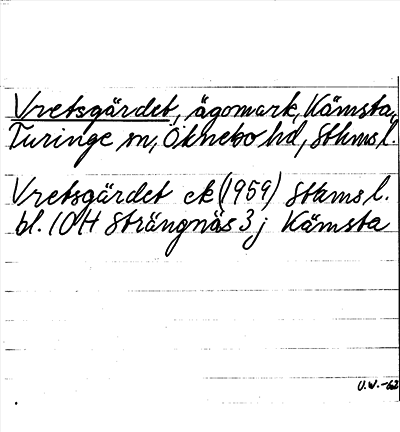 Vretsgärdet, ägomark, Kämsta,
Turinge sn, Öknebo hd, Sthms l.
Vretsgärdet ek (1959) Sthms l.
bl. 10H Strängnäs 3j Kämsta
U.W. -62